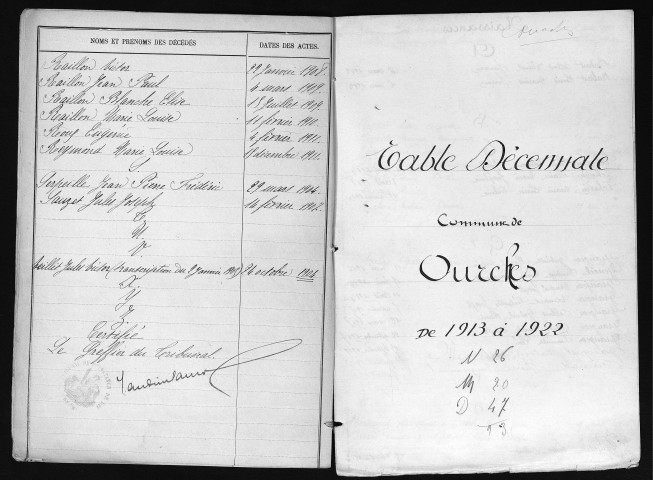 NOMS ET PRENOMS DES DÉCÉDÉS DATES DES ACTES.
Raillon Victor 29 Janvier 1908.
Raillon Jean Paul 4 mars 1909.
Raillon Blanche Elise 15 Juillet 1909.
Raillon Marie Louise 11 février 1910.
Roux Eugenie 4 février 1911.
Reymond Marie Louise décembre 1911.
S
Serpeille Jean Pierre Frédéric 29 mars 1904.
Sauzet Jules Joseph 14 février 1912.
T
U
V.
Jules Victor (transcription du 9 Janvier 1905) 26 octobre 1904
X.
Y.
Z.
Certifié
Le Greffier du Tribunal.
Naissances
Table Décennale
Commune de
Ourches
De 1913 à 1922
N 26
M 20
D 47
93